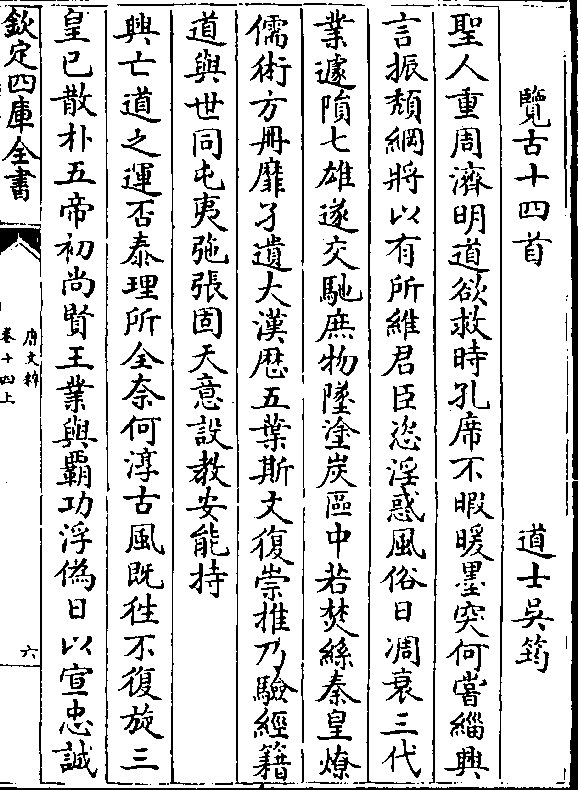 覽古十四首 道士吳筠
聖人重周濟明道欲救時孔席不暇暖墨突何嘗緇興
言振頽綱將以有所維君臣恣淫惑風俗日凋衰三代
業遽隕七雄遂交馳庶物墜塗炭區中若焚絲秦皇燎
儒術方冊靡孑遺大漢歴五葉斯文復崇推乃驗經籍
道與世同屯夷弛張固天意設教安能持
興亡道之運否泰理所全奈何淳古風既徃不復旋三
皇已散朴五帝初尚賢王業與霸功浮偽日以宣忠誠
欽定四庫全書
唐文粹
卷十四上
六